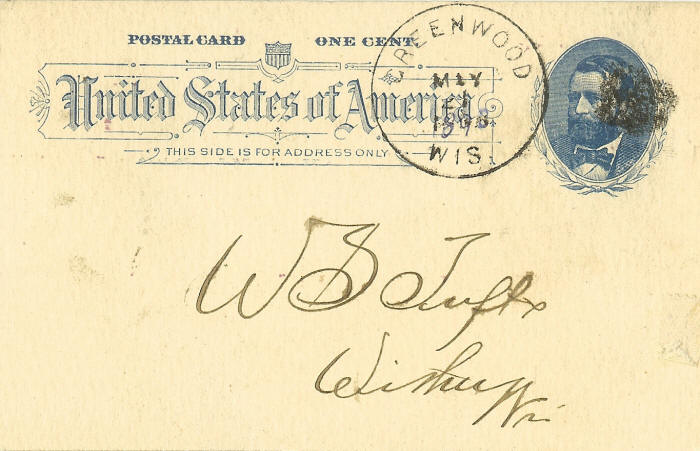 POSTAL CARD ONE CENT
United States of America
THIS SIDE IS FOR ADDRESS ONLY
GREENWOOD
MAY
WIS.
W B Tufts
Wis